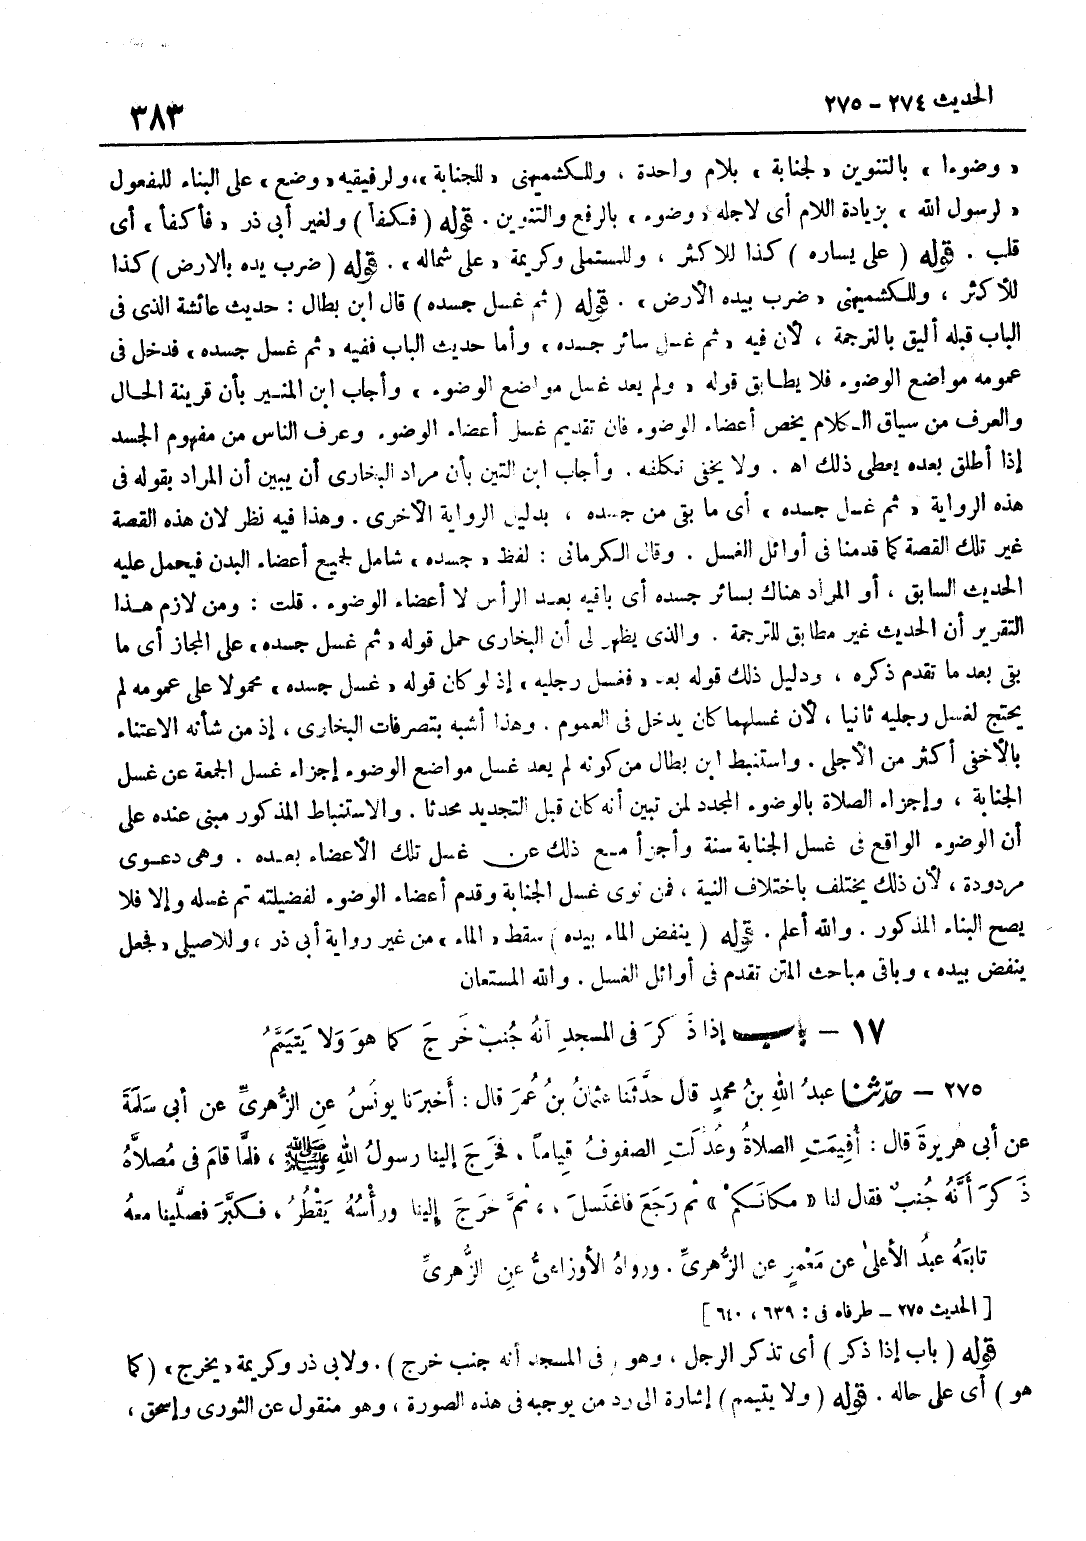 الحديث ٢٧٤ - ٢٧٥
٣٨٣
« وضوءا » بالتنوين « لجنابة » بلام واحدة ، وللكشميهنى « للجنابة »، ولرفيقيه « وضع » على البناء للمفعول
« لرسول الله » بزيادة اللام أى لاجله « وضوء » بالرفع والتنوين . قوله ( فكفأ ) ولغير أبى ذر « فأكفأ » أى
قلب . قوله ( على يساره ) كذا للاكثر ، وللمستملى وكريمة « على شماله » . قوله ( ضرب يده بالارض ) كذا
للأكثر ، وللكشميهنى « ضرب بيده الأرض » . قوله ( ثم غسل جسده ) قال ابن بطال : حديث عائشة الذى فى
الباب قبله أليق بالترجمة ، لأن فيه « ثم غسل سائر جسده » وأما حديث الباب ففيه « ثم غسل جسده » فدخل فى
عمومه مواضع الوضوء فلا يطابق قوله « ولم يعد غسل مواضع الوضوء » وأجاب ابن المنير بأن قرينة الحال
والعرف من سياق الكلام يخص أعضاء الوضوء فان تقديم غسل أعضاء الوضوء وعرف الناس من مفهوم الجسد
إذا أطلق بعده يعطى ذلك اه . ولا يخفى تكلفه . وأجاب ابن التين بأن مراد البخارى أن يبين أن المراد بقوله فى
هذه الرواية « ثم غسل جسده » أى ما بقى من جسده ، بدليل الرواية الأخرى . وهذا فيه نظر لان هذه القصة
غير تلك القصة كما قدمنا فى أوائل الغسل . وقال الكرمانى : لفظ « جسده » شامل لجميع أعضاء البدن فيحمل عليه
الحديث السابق ، أو المراد هناك بسائر جسده أى باقيه بعد الرأس لا أعضاء الوضوء . قلت : ومن لازم هذا
التقرير أن الحديث غير مطابق للترجمة . والذى يظهر لى أن البخارى حمل قوله « ثم غسل جسده » على المجاز أى ما
بقى بعد ما تقدم ذكره ، ودليل ذلك قوله بعد « فغسل رجليه » إذ لو كان قوله « غسل جسده » محمولا على عمومه لم
يحتج لغسل رجليه ثانيا ، لأن غسلهما كان يدخل فى العموم . وهذا أشبه بتصرفات البخارى ، إذ من شأنه الاعتناء
بالأخفى أكثر من الأجلى . واستنبط ابن بطال من كونه لم يعد غسل مواضع الوضوء إجزاء غسل الجمعة عن غسل
الجنابة ، وإجزاء الصلاة بالوضوء المجدد لمن تبين أنه كان قبل التجديد محدثا . والاستنباط المذكور مبنى عنده على
أن الوضوء الواقع فى غسل الجنابة سنة وأجزأ مع ذلك عن غسل تلك الأعضاء بعده . وهى دعوى
مردودة ، لأن ذلك يختلف باختلاف النية ، فمن نوى غسل الجنابة وقدم أعضاء الوضوء لفضيلته تم غسله وإلا فلا
يصح البناء المذكور . والله أعلم . قوله ( ينفض الماء بيده ) سقط « الماء » من غير رواية أبى ذر ، وللاصيلى « فجعل
ينفض بيده » وباقى مباحث المتن تقدم فى أوائل الغسل . والله المستعان
١٧ - باب إذا ذَكرَ فى المسجدِ أنهُ جُنبٌ خَرجَ كما هوَ وَلا يَتيمَّمُ
٢٧٥ - حدّثنا عبدُ اللهِ بنُ محمدٍ قال حدَّثنا عثمانُ بنُ عُمرَ قال : أخبرَنا يونسُ عنِ الزُّهرىِّ عن أبى سلمةَ
عن أبى هريرةَ قال : أُقِيمَتِ الصلاةُ وعُدِّلَتِ الصفوفُ قِياماً . فخرَجَ إلينا رسولُ اللهِ ﷺ ، فلمَّا قامَ فى مُصلاَّهُ
ذَكرَ أَنَّهُ جُنبٌ فقال لنا « مكانَكمْ » ثم رَجَعَ فاغتَسلَ ، ، ثمَّ خرَجَ إلينا ورأْسُهُ يَقْطُرُ ، فكبَّرَ فصلَّينا معهُ
تابعَهُ عبدُ الأعلىٰ عن مَعْمرٍ عنِ الزُّهرىِّ . ورواهُ الأوزاعىُّ عنِ الزُّهرىِّ
[ الحديث ٢٧٥ - طرفاه فى : ٦٣٩ ، ٦٤٠ ]
قوله ( باب إذا ذكر ) أى تذكر الرجل ، وهو ( فى المسجد أنه جنب خرج ) . ولابى ذر وكريمة « يخرج » ( كما
هو ) أى على حاله . قوله ( ولا يتيمم ) إشارة الى رد من يوجبه فى هذه الصورة ، وهو منقول عن الثورى وإسحق ،